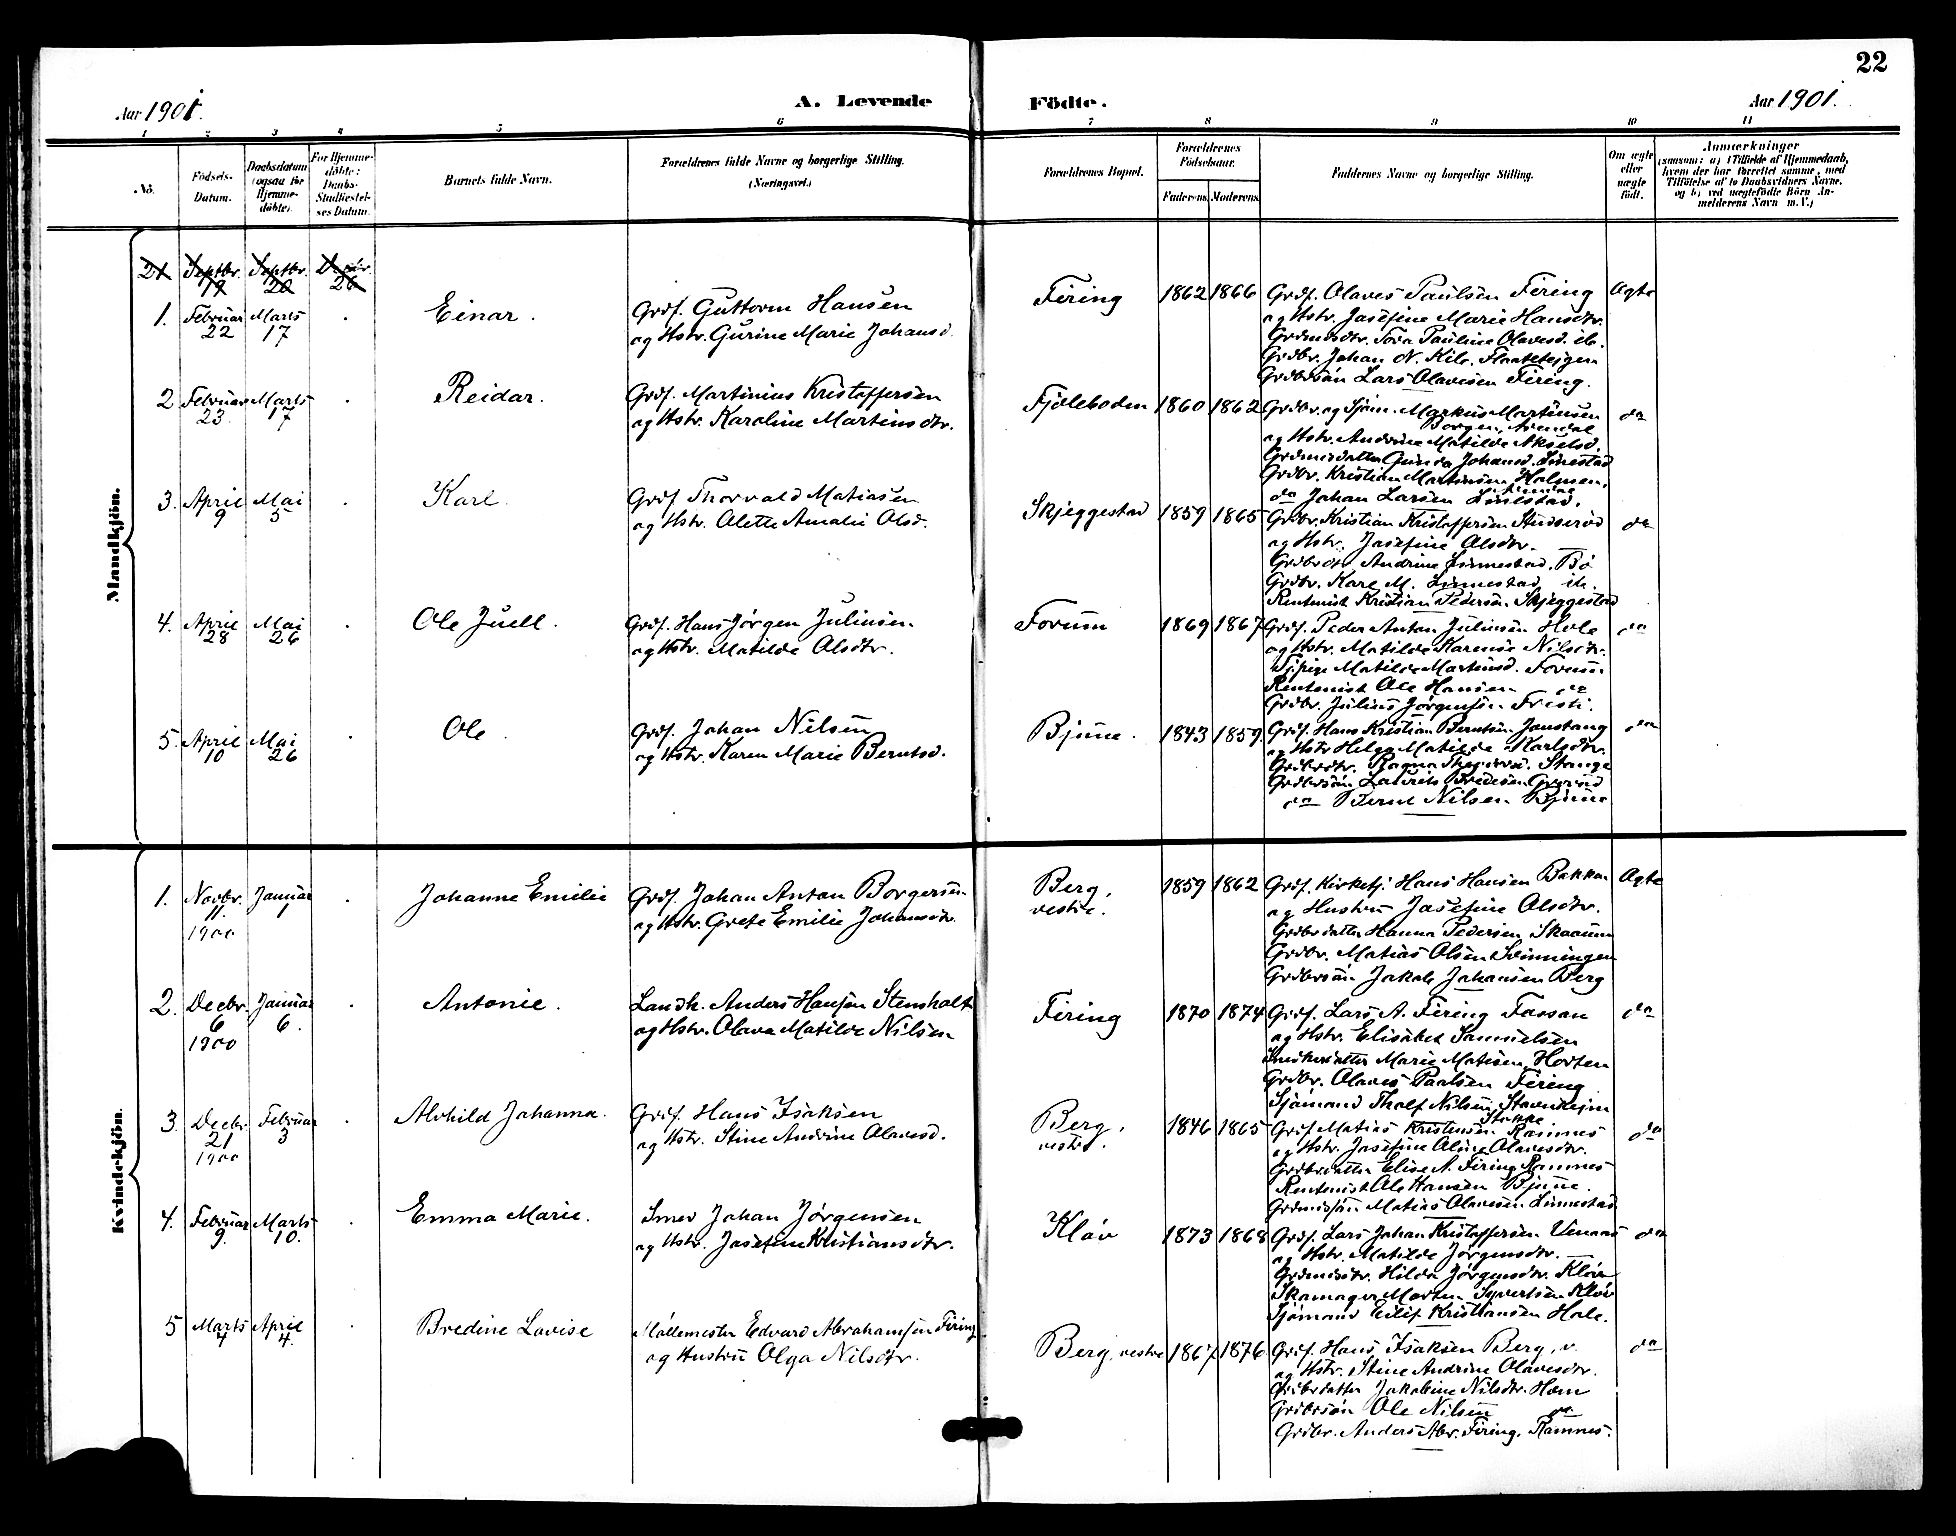 22
Aar 1901.
A. Levende
Födte.
Aar 1901.
1 2 3 4 5 6 7 8 9 10 11
No.
Födsels-Datum.
Daabsdatum (ogsaa for Hjemme-döbte).
For Hjemme-döbte: Daabs-Stadfæstel-ses Datum
Barnets fulde Navn.
Forældrenes fulde Navne og borgerlige Stilling.
(Næringsvei.)
Forældrenes Bopæl.
Forældrenes Födselsaar.
Faderens. Moderens.
Faddernes Navne og borgerlige Stilling.
Om ægte eller uægte födt.
Anmærkninger
(saasom: a) i Tilfælde af Hjemmedaab,
hvem der har forrettet samme, med
Tilföielse af to Daabsvidners Navne,
og b) ved uægtefödte Börn An-
melderens Navn m. V.)
Mandkjön.
21 Septbr. 19 Septbr. 20 26
1. Februar 22 Marts 17 Einar.
Grdf. Guttorm Hansen
og Hstr. Gurine Marie Johansd.
Firing 1862 1866
Grdf. Olaves Paulsen Firing Ægte
og Hstr. Josefine Marie Hansdtr.
Grdmdsdtr. Tora Pauline Olavesd. ib.
Grdbr. Johan N. Kile. Flaatetejgen
Grdbrsön Lars Olavesen Firing.
2 Februar 23 Marts 17 Reidar.
Grdf. Martinius Kristoffersen
og Hstr. Karoline Martinsdtr.
Fjæleboden 1860 1862
Grdbr. og Sjöm. Markus Martinsen do
Borgen, Arendal
og Hstr. Andrine Matilde Akselsd.
Grdmdsdatter Gunda Johansd. Linnestad
Grdbr. Kristian Martinsen Holmen,
do Johan Larsen Linnestad.
3. April 9 Mai 5 Karl.
Grdf Thorvald Matiasen
og Hstr. Olette Amalie Olsd.
Skjeggestad 1859 1865
Grdbr. Kristian Kristoffersen do
og Hstr. Josefine Olsdtr.
Grdbrdtr. Andrine Linnestad. Bö
Grdbr. Karl M. Linnestad ib.
Rentenist Kristian Pedersen Skjeggestad
4. April 28 Mai 26 Ole Juell.
Grdf. Hans Jørgen Juliusen
og Hstr. Matilde Olsdtr.
Forum 1869 1867
Grdf. Peder Anton Juliusen Hole do
og Hstr. Matilde Karense Nilsdtr.
Tjpige Matilde Martinsd. Forum.
Rentenist Ole Hansen do
Grdbr. Julius Jørgensen
5. April 10 Mai 26 Ole.
Grdf. Johan Nilsen
og Hstr. Karen Marie Berntsd.
Bjune. 1843 1859.
Grdf. Hans Kristian Berntsen Jonstang do
og Hstr Helga Matilde Karlsdtr.
Grdbrdtr. Ragna Stange
Grdbrsön Laurits Bredesen
do Bernt Nilsen Bjune
Kvindekjön.
1. Novbr. 11. 1900 Januar 1 Johanne Emilie
Grdf. Johan Anton Borgersen
og Hstr. Grete Emilie Johansdtr.
Berg, vestre. 1859 1862
Grdf. Kirketj. Hans Hansen Bakken Ægte
og Hustru Josefine Olsdtr.
Grdbrdatter Hanna Pedersen Skaaum
Grdbr. Matias Olsen Svinningen
Grdbrsön Jakob Johansen Berg
2. Decbr. 6 1900 Januar 6. Antonie.
Landh. Anders Hansen Stensholt
og Hstr. Olava Matilde Nilsen
Firing 1870 1874
Grdf. Lars A. Firing Fossan do
og Hstr. Elisabet Samuelsen
Snedkerdatter Marie Matisen, Horten
Grdbr. Olaves Paulsen Firing
Sjömand Tholf Nilsen, Stavenhejm
Stokke
3. Decbr. 21 1900 Februar 3 Alvhild Johanna.
Grdf. Hans Isaksen
og Hstr. Stine Andrine Olavesd.
Berg, vestre. 1846 1865
Grdf Matias Kristensen Ramnes do
og Hstr. Josefine Aline Olavesdtr.
Grdbrdatter Elise A. Firing Ramnes
Rentenist Ole Hansen Bjune.
Grdmdsön Matias Olavesen Linnestad
4. Februar 9. Marts 10. Emma Marie.
Smed Johan Jørgensen
og Hstr. Josefine Kristiansdtr.
Kløv 1873 1868
Grdf. Lars Johan Kristoffersen Unnaas do
og Hstr. Matilde Jørgensdtr.
Grdmdsdtr. Hilda Jørgensdtr. Kløv
Skomager Morten Syvertsen Kløv
Sjömand Eilif Kristiansen Hole.
5 Marts 4 April 4. Bredine Lovise
Møllemester Edvard Abrahamsen Firing
og Hustru Olga Nilsdtr.
Berg, vestre 1867 1876
Grdf. Hans Isaksen Berg, v. do
og Hstr. Stine Andrine Olavesdtr.
Grdbrdatter Jakobine Nilsdtr. Hem
Grdbrsön Ole Nilsen do
Grdbr. Anders Abr. Firing. Ramnes.